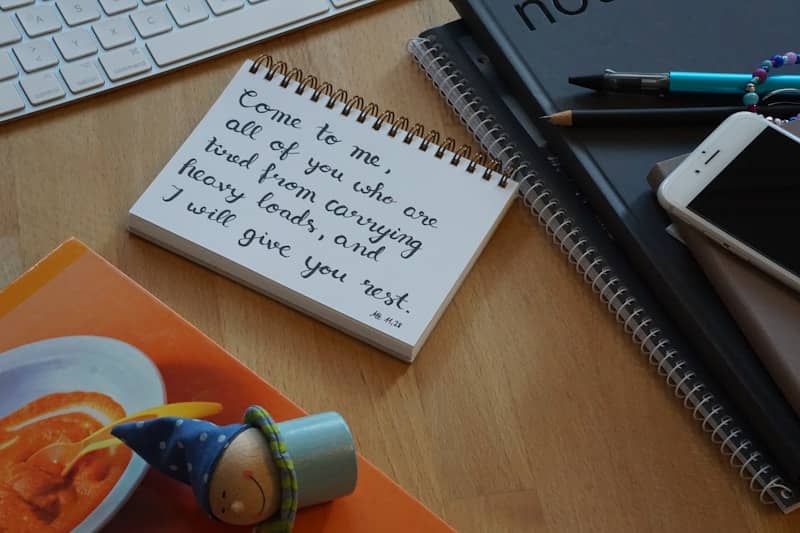 A S
Y X C V
control option command
Come to me,
all of you who are
tired from carrying
heavy loads, and
I will give you rest.
Mt 11,28